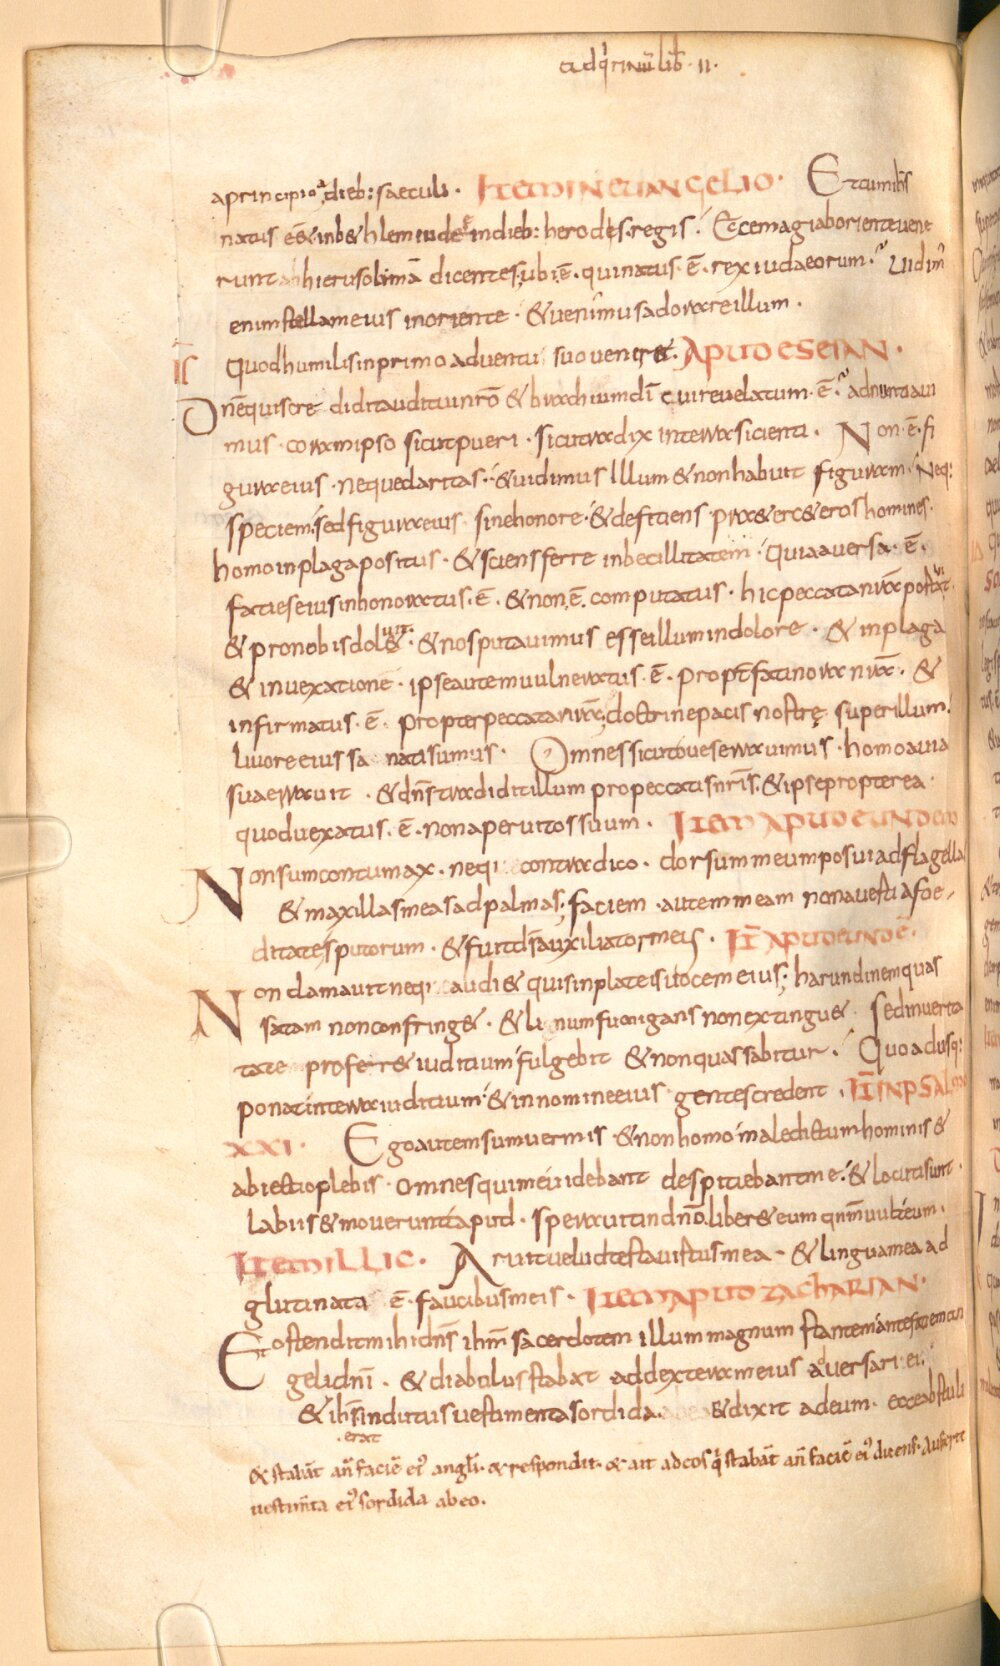 ad qrinū lib · II ·
a principio a dieb: saeculi · ITEM IN EUANGELIO · Et cum ihs
natus eēt in bethlem iudeę in dieb: herodes regis · Ecce magi ab oriente uene
runt ab hierusolimā dicentes ubi ē · qui natus · ē · rex iudaeorum · Uidim
enim stellam eius in oriente · & uenimus adorare illum ·
Quod humilis in primo aduentu suo ueniret · APUT ESEIAN ·
Dnē quis cre didit auditui nrō & brachium dī cui reuelatum · ē · adnuntiaui
mus · coram ipso sicut pueri · sicut radix in terra sicienti · Non · ē · fi
gura eius · neque claritas · & uidimus Illum & non habuit figuram · Neq:
speciem · sed figura eius sine honore · & deficiens · praeter ceteros homines ·
homo in plaga positus · & sciens ferre inbecillitatem · Quia auersa · ē ·
facies eius inhonoratus · ē · & non · ē · computatus · hic peccata nrā portauit
& pro nobis dolet · & nos putauimus esse illum in dolore · & in plaga
& in uexatione · ipse autem uulneratus · ē · propt facinora nrā · &
infirmatus · ē · propter peccata nrā doctrine pacis nostrę super illum ·
liuore eius sa natis umus · Omnes sicut oues errauimus · homo a uia
sua errauit · & dns tradidit illum pro peccatis nris · & ipse propterea
quod uexatus · ē · non aperuit os suum · ITEM APUD EUNDEM
Non sum contumax · neq contradico · dorsum meum posui ad flagella
& maxillas meas ad palmas; faciem · autem meam non auerti a foe
ditate sputorum · & fuit ds auxiliator meus · IT APUD EUNDĒ ·
Non clamauit neq audiet quis in plateis uocem eius; harundinem quas
satam non confringet · & linum fumigans non extinguet · sed in uerita
tate proferet iuditium fulgebit & non quassabitur · Quo adusq:
ponat in terra iuditium · & in nomine eius gentes credent · IT IN PSALMO
XXI · Ego autem sum uermis & non homo maledictum hominis &
abiectio plebis · omnes qui me uidebant despiciebant me · & locuti sunt ·
labiis & mouerunt caput · sperauit in dnō liberet eum qnm uult eum ·
ITEM ILLIC · Aruit uelud testa uirtus mea · & lingua mea ad
glutinata ē · faucibus meis · ITEM APUT ZACHARIAN ·
Et ostendit mihi dns ihm sacerdotem illum magnum stantem ante faciem an
geli dnī · & diabulus stabat ad dexteram eius aduersari ei ·
& ihs indutus uestimenta sordida & dixit ad eum · ecce abstuli
· erat
& stabāt an faciē ei angli · & respondit · & ait ad eos q stabāt an faciē ei dicens · Auferte
uestimta ei sordida ab eo ·